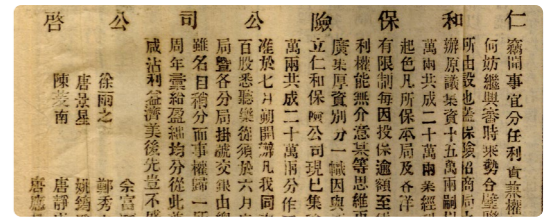 仁和保險公司公啓
竊聞事宜分任利責兼權
何妨繼與善時乘勢合璧
所由設也蓋保險招商局
辦原議集資十五萬兩嗣
萬兩共成二十萬兩業經
起色凡所保本局及各洋
有限制每因投保逾額至
利權能無介意某等思維再
廣集厚資別分一幟因與
立仁和保險公司現已集
萬兩共成二十萬兩分作
准於七月朔開辦凡我同
百股悉聽樂從須於六月
局暨各分局掛號交銀由總
雖名目稍分而事權歸一
周年彙給盈絀均分從此
咸沾利益濟美後先豈不
余富
徐雨之 鄭秀
唐景星 姚
陳菱南 唐靜
唐應